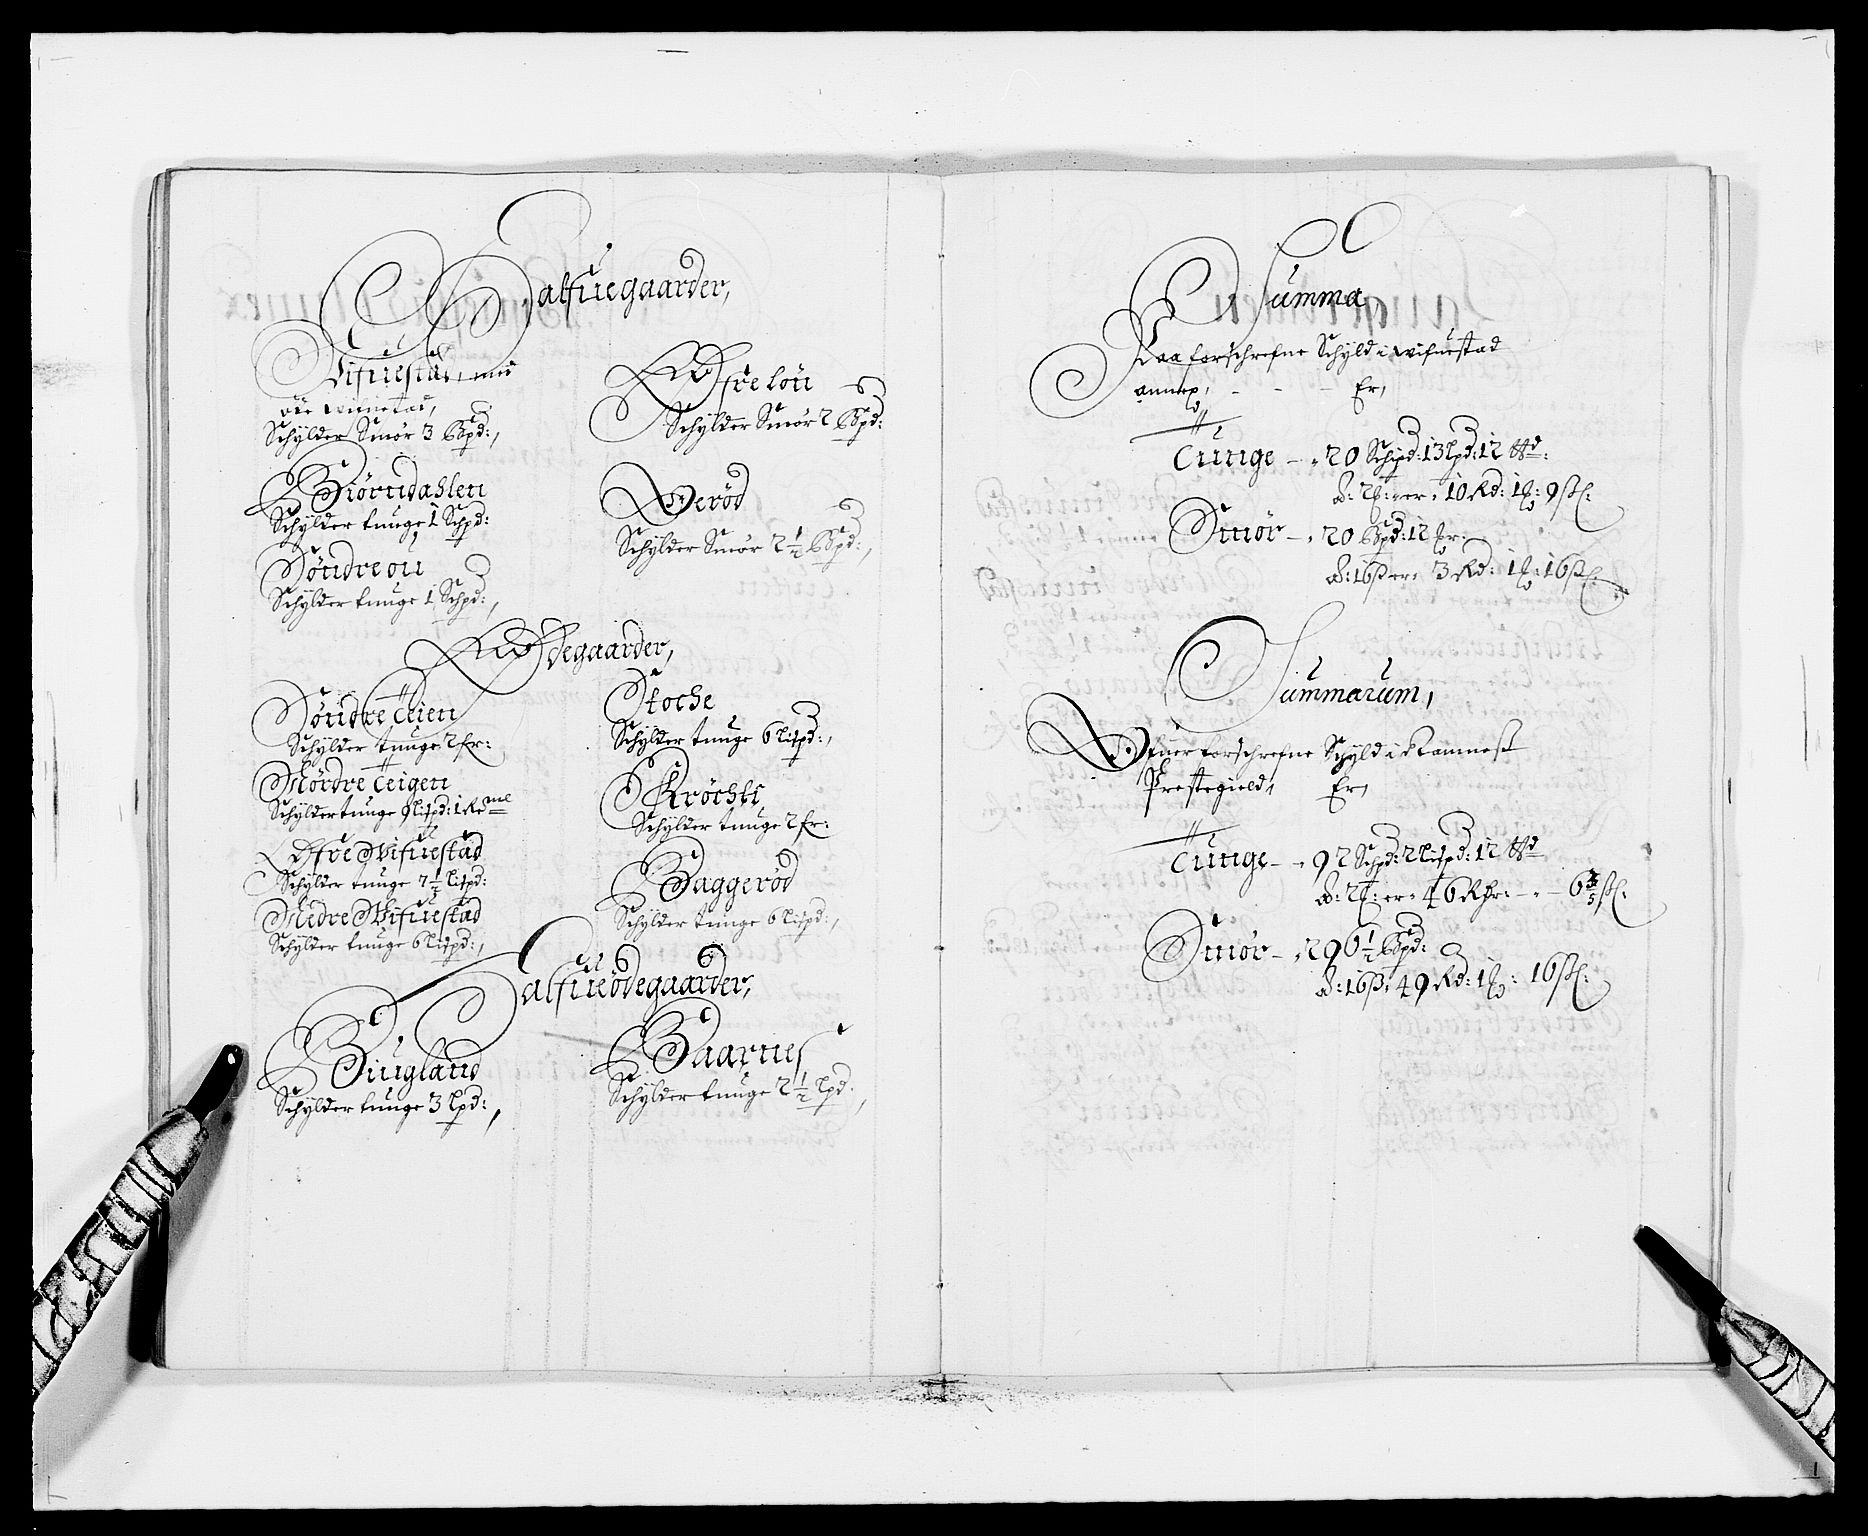 Halfuegaarder,
Vifuestad, med
øde
Schylder Smør 3 Bpd:,
Biørndahlen
Schylder tunge 1 Schpd:
Søndre oü
Schylder tunge 1 Schpd:,
Øfre loü
Schylder Smør 2 Bpd:
Øerød
Schylder Smør 2 1/2 Bpd:,
Ødegaarder,
Søndre Teien
Schylder tunge 2 fr:
Nørdre Teigen
Schylder tunge 9 lispd: 1 Rd
Øfre Vifuestad
Schylder tunge 7 1/2 lispd:
Nedre Vifuestad
Schylder tunge 6 lispd:,
Stoche
Schylder tunge 6 lispd:,
Krøchli
Schylder tunge 2 fr:
Baggerød
Schylder tunge 6 lispd:,
Halfueødegaarder,
Biugland
Schylder tunge 3 lpd:,
Baarnes
Schylder tunge 2 1/2 lpd:,
Summa
Paa forschrefne Schyld i Wifuestad
annex, - - - Er,
Tunge - 20 Schpd: 13 lpd: 12
er 10 Rd: 1 9 ß
Smør - 20 Bpd: 12 fr:
à: 16 ß er 3 Rd: 1 16 ß
Summarum,
Ofuer forschrefne Schyld i Ramness
Prestegield, Er,
Tunge - 92 Schpd: 2 lispd: 12
er 46 Rdr: - 6 3/5 ß
Smør - 296 1/2 Bpd:
à: 16 ß, 49 Rd: 1 : 16 ß